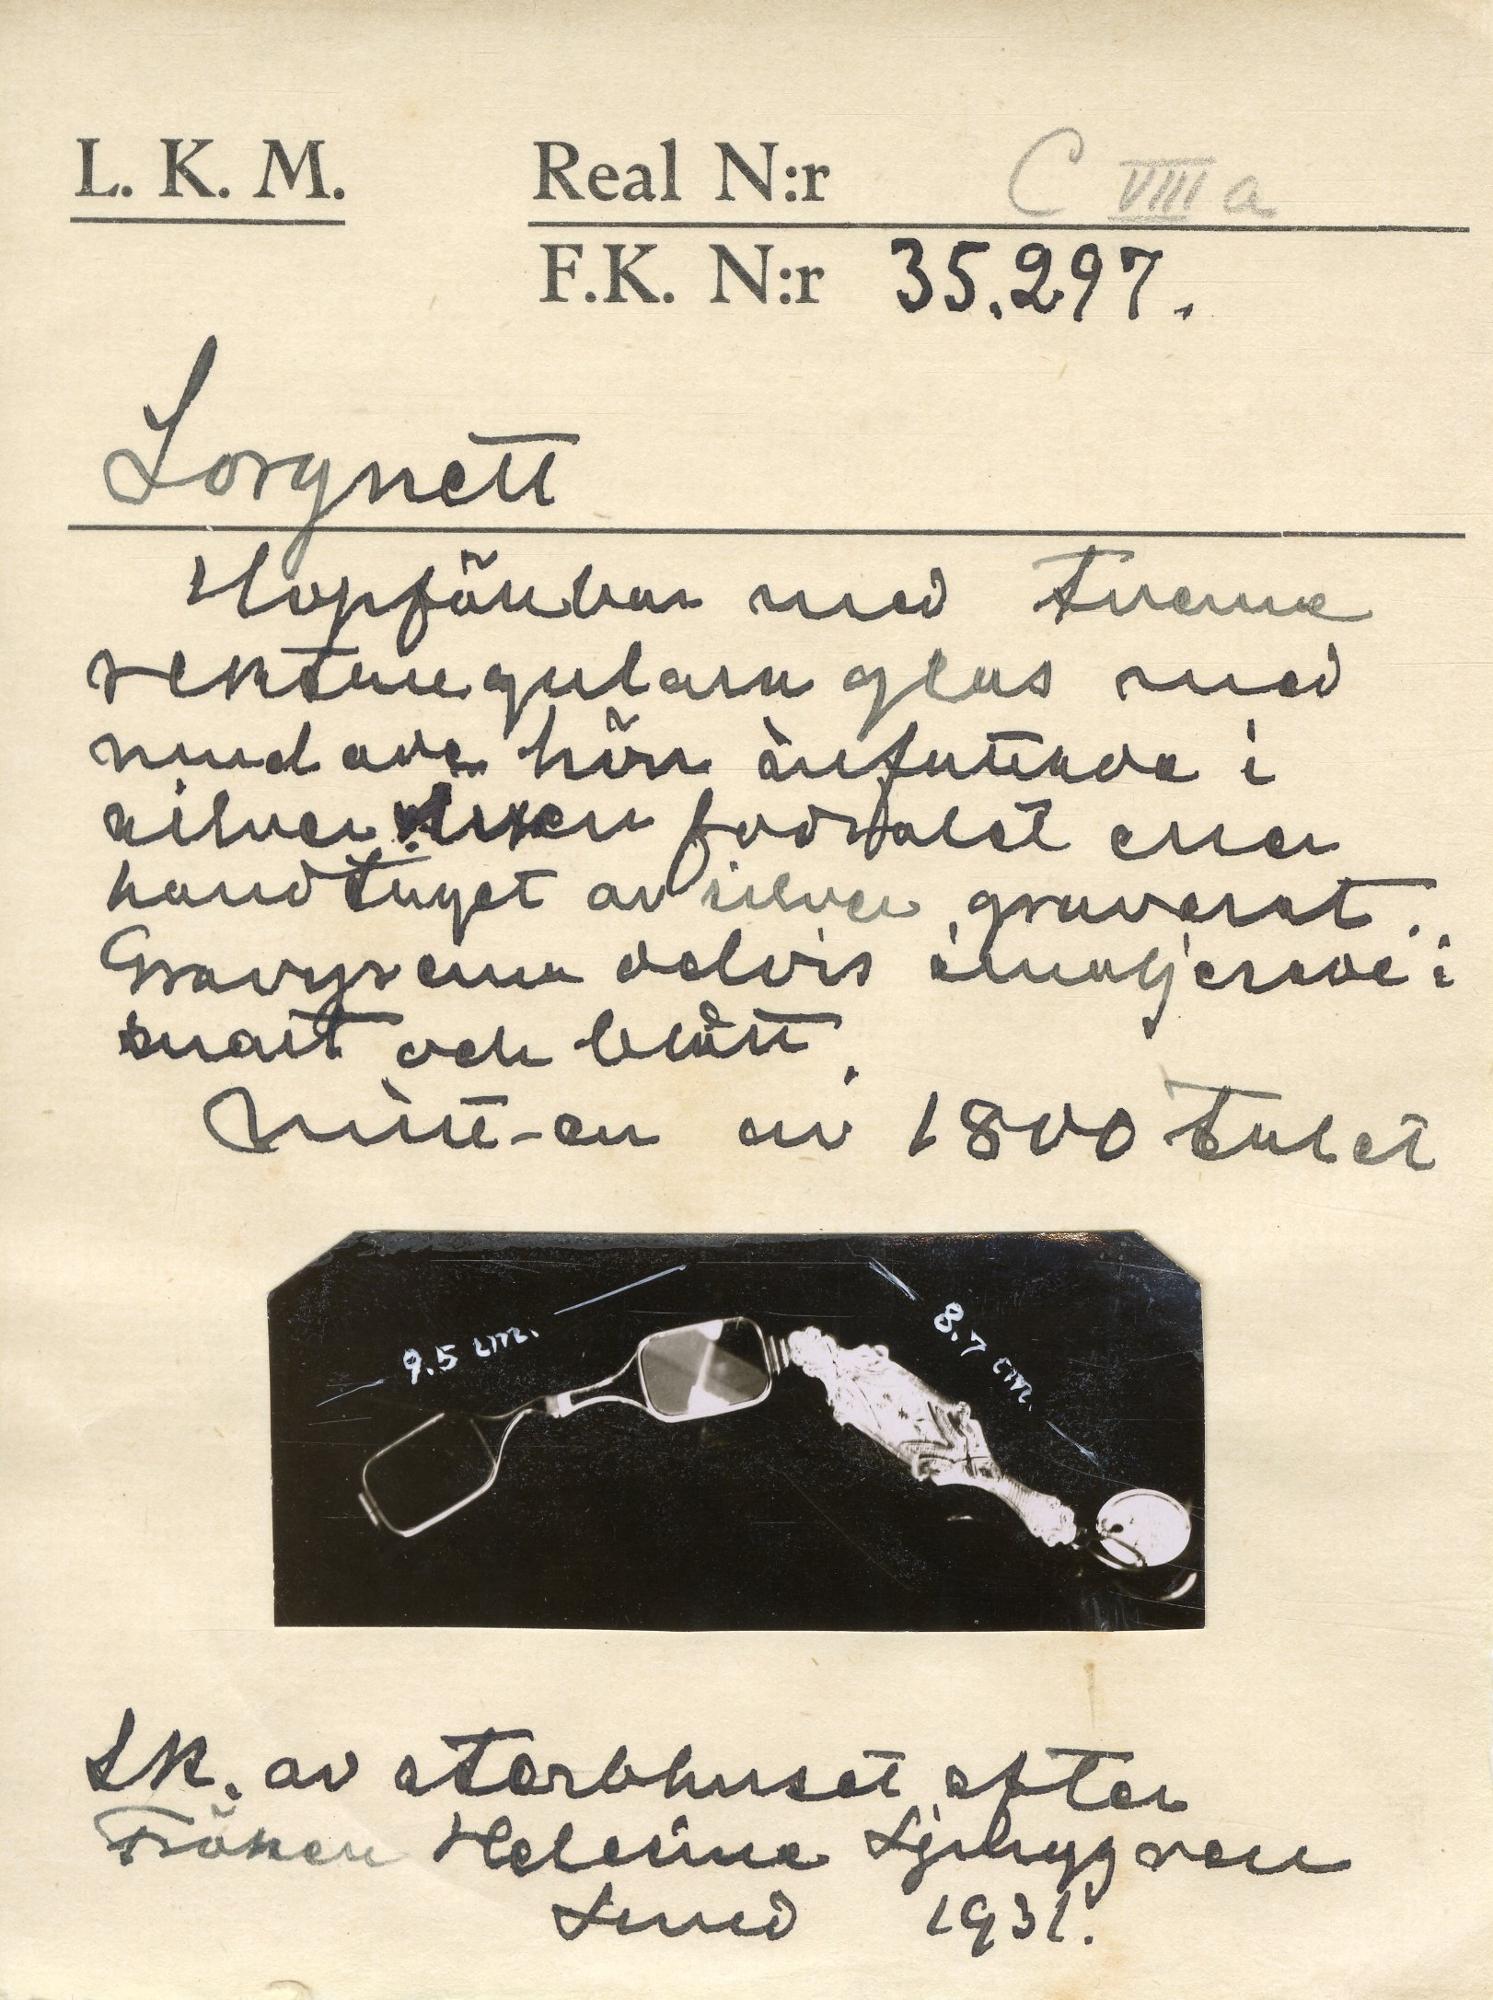 L. K. M. Real N:r C VIII a
F.K. N:r 35.297.
Lorgnett
Hopfällbar med tvenne
rektangulära glas med
rundade hörn infattade i
silver. fodralet eller
handtaget av silver, graverat.
Gravyrerna delvis emaljerade i
svart och blått.
Mitt-en av 1800 talet
9.5 cm.
8.7 cm.
Sk. av sterbhuset efter
Fröken Helena Ljunggren
Lund 1931.